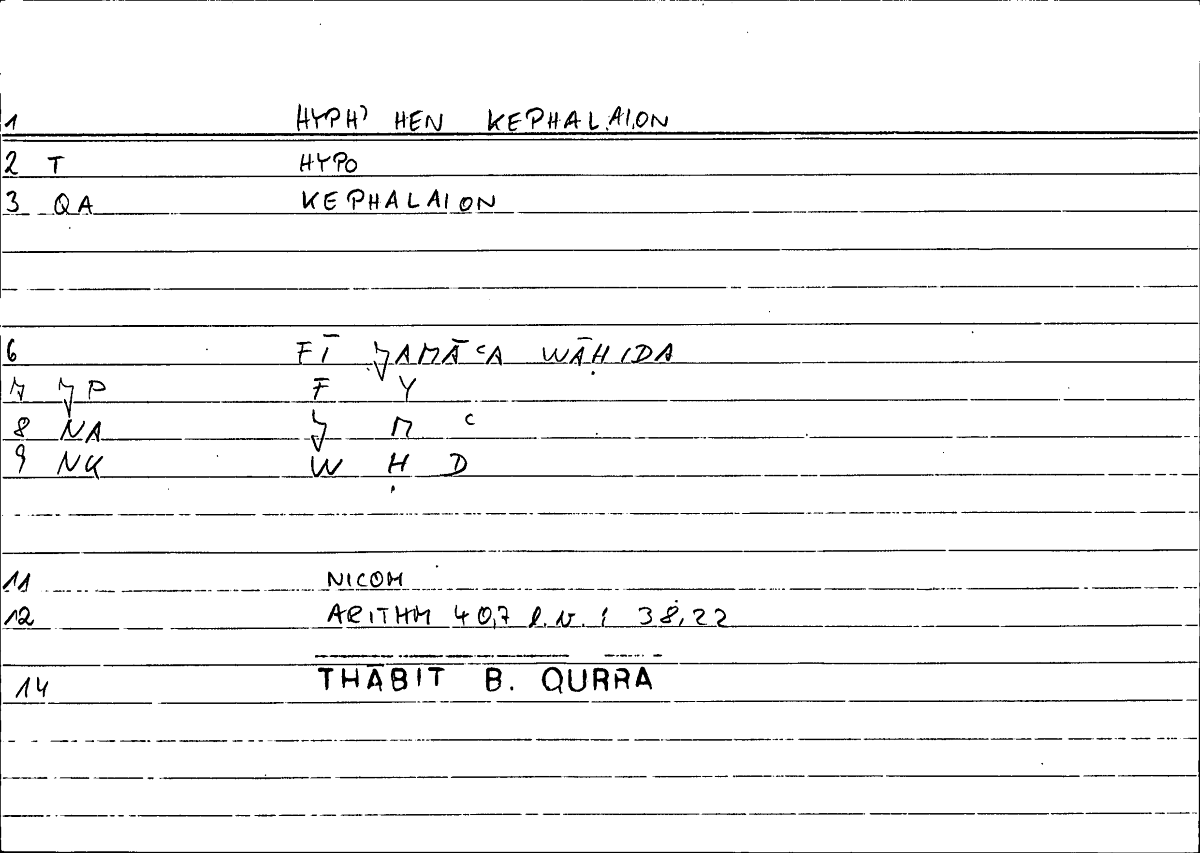 1 HYPH' HEN KEPHALAION
2 T HYPO
3 QA KEPHALAION
6 FĪ JAMĀʿA WĀḤIDA
7 JP F Y
8 NA J M ʿ
9 NK W Ḥ D
11 NICOM
12 ARITHM 40,7 l.v. ! 38,22
14 THĀBIT B. QURRA